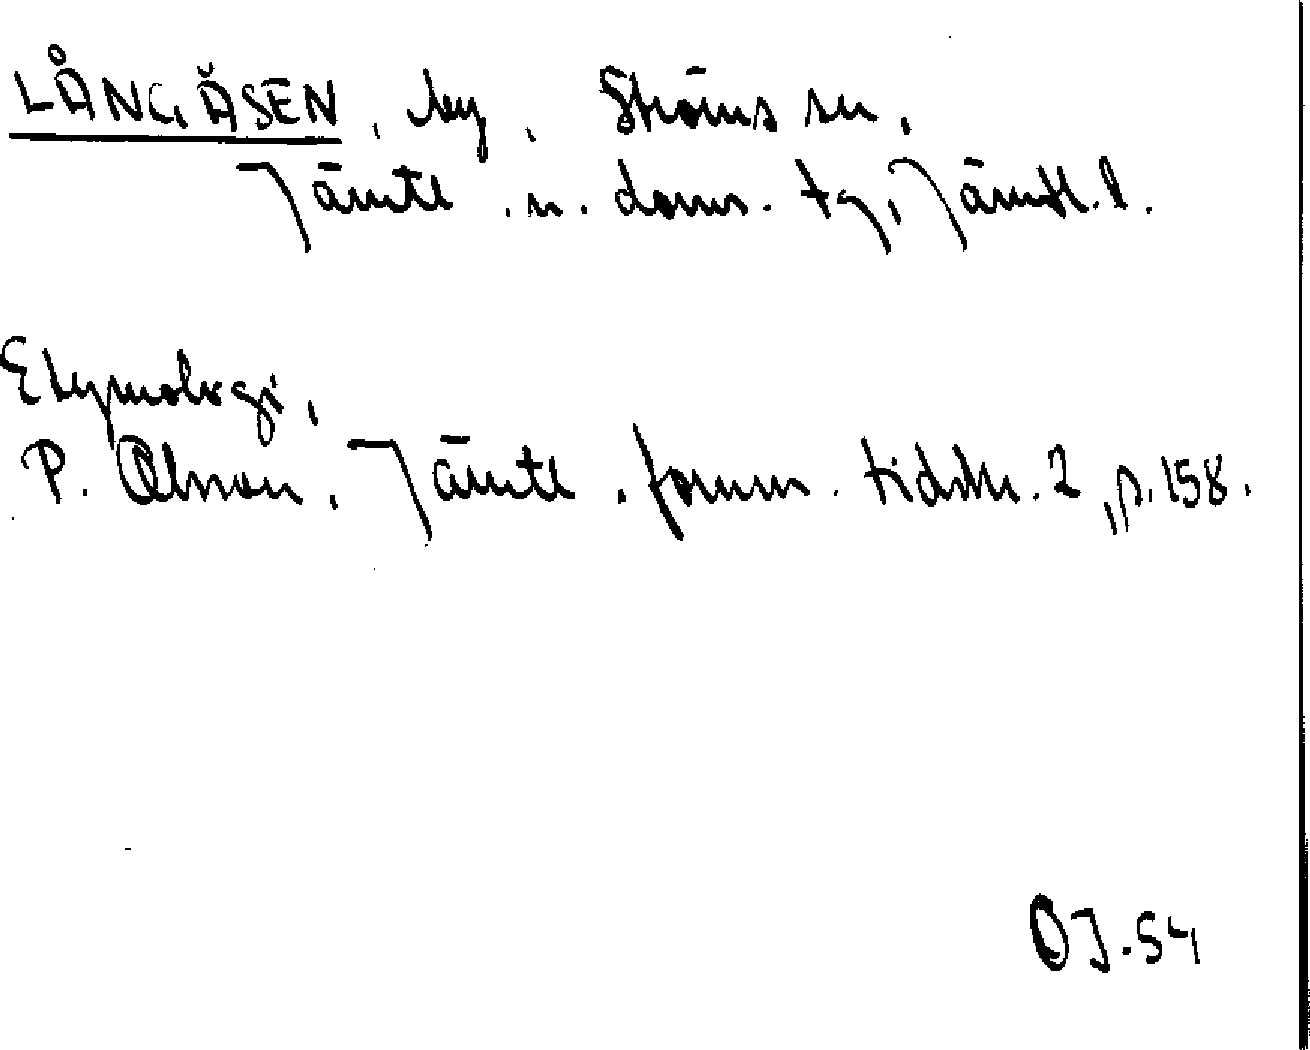 LÅNGÅSEN, by, Ströms sn,
Jämtl. n. doms. tg, Jämtl. l.
Etymologi,
P. Olsson, Jämtl. fornm. tidskr. 2, p. 158.
OJ.54